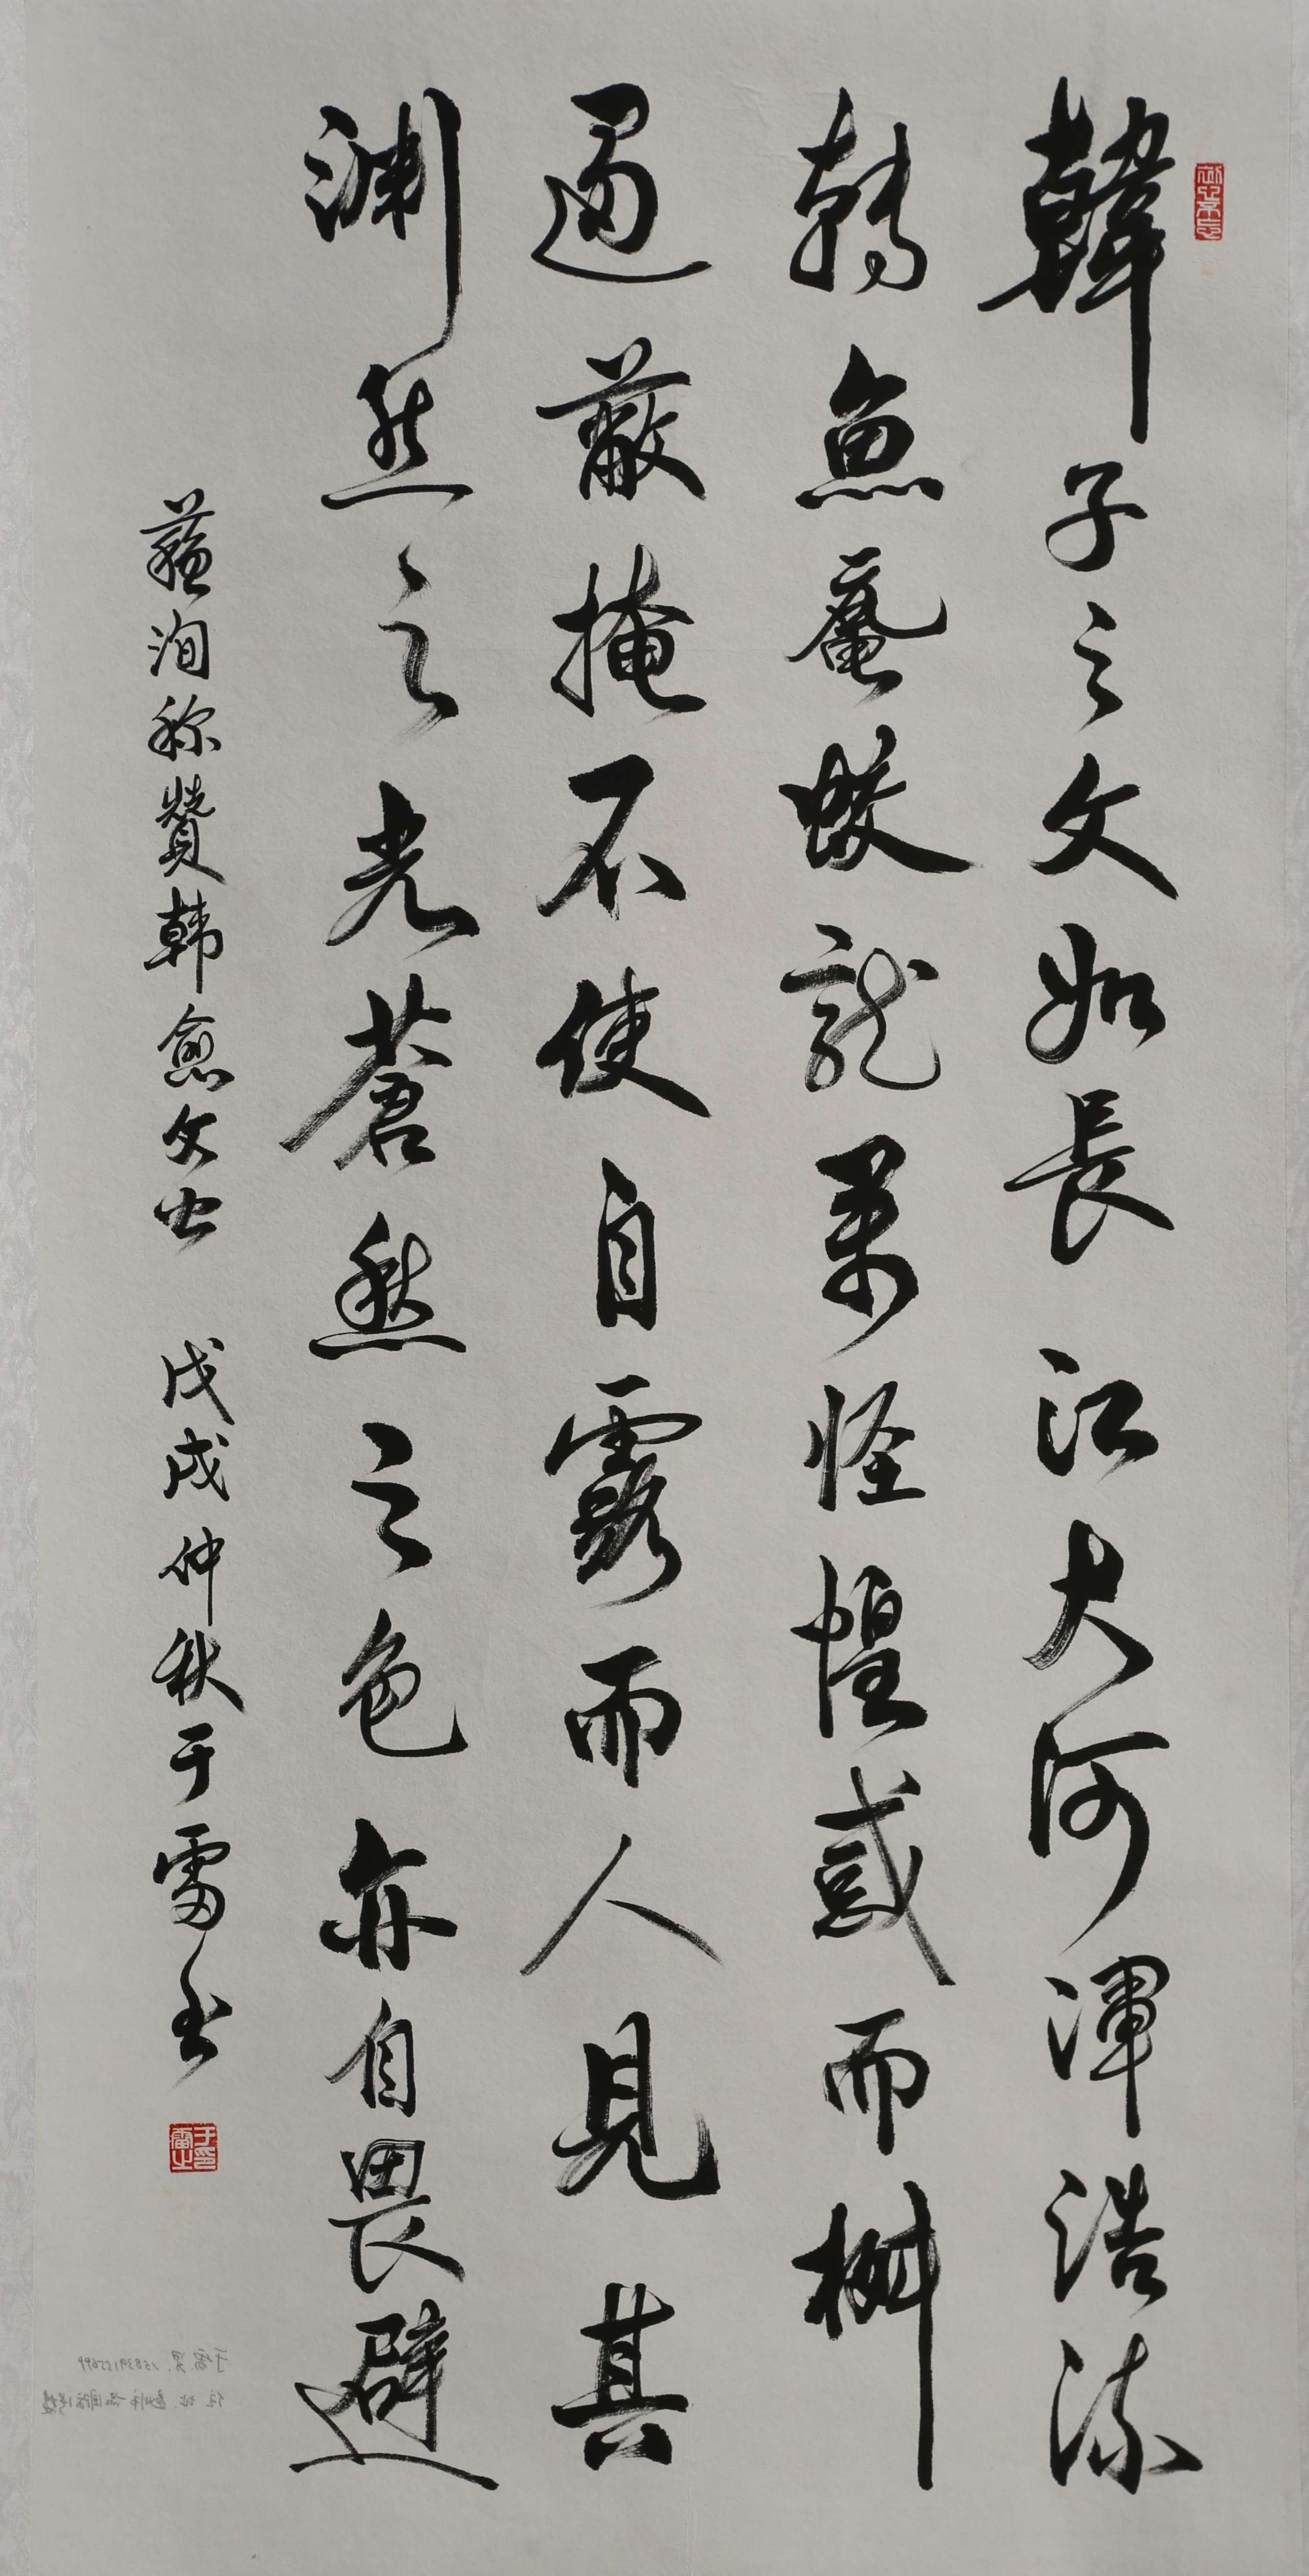 韓子之文如長江大河渾浩流
轉魚黿蛟龍萬怪惶惑而抑
遏蔽掩不使自露而人見其
淵然之光蒼然之色亦自畏避
蘇洵称贊韩愈文 戊戌仲秋于雷书
于雷之印